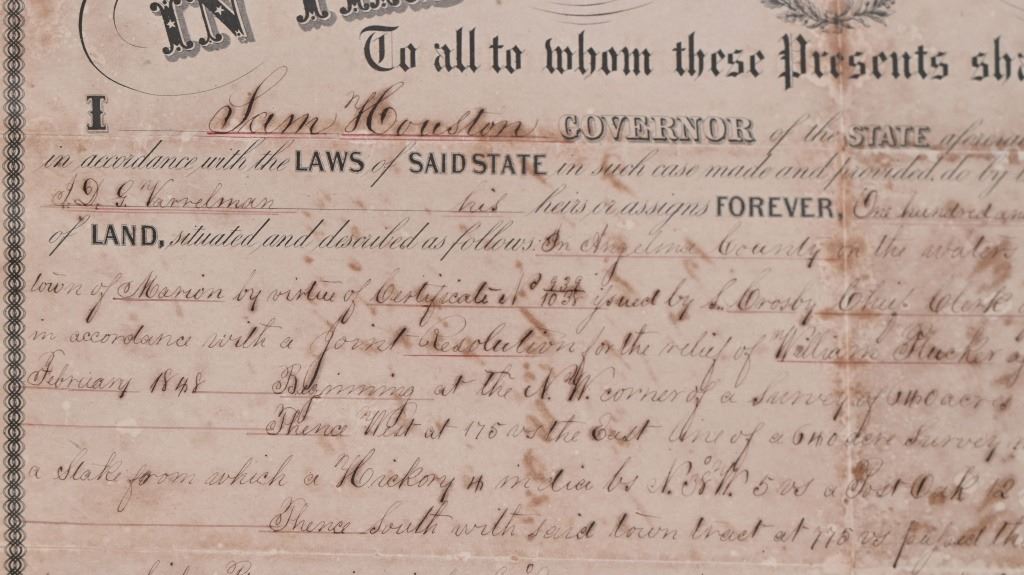 IN
To all to whom these Presents sha
I Sam Houston GOVERNOR of the STATE aforesa
in accordance with the LAWS of SAID STATE in such case made and provided, do by
J. D. G. Varrelman his heirs or assigns FOREVER, One hundred an
of LAND, situated and described as follows: In Angelina County on the waters
town of Marion by virtue of Certificate issued by S. Crosby Chief Clerk
in accordance with a Joint Resolution for the relief of William
February 1848 Beginning at the N. W. corner of a Survey of 640 acres
Thence West at 175 vs the East line of a 640 acre Survey
a Stake from which a Hickory 4 in dia bs N. 38° W. 5 vs a Post Oak 12
Thence South with said town tract at 775 vs passed th